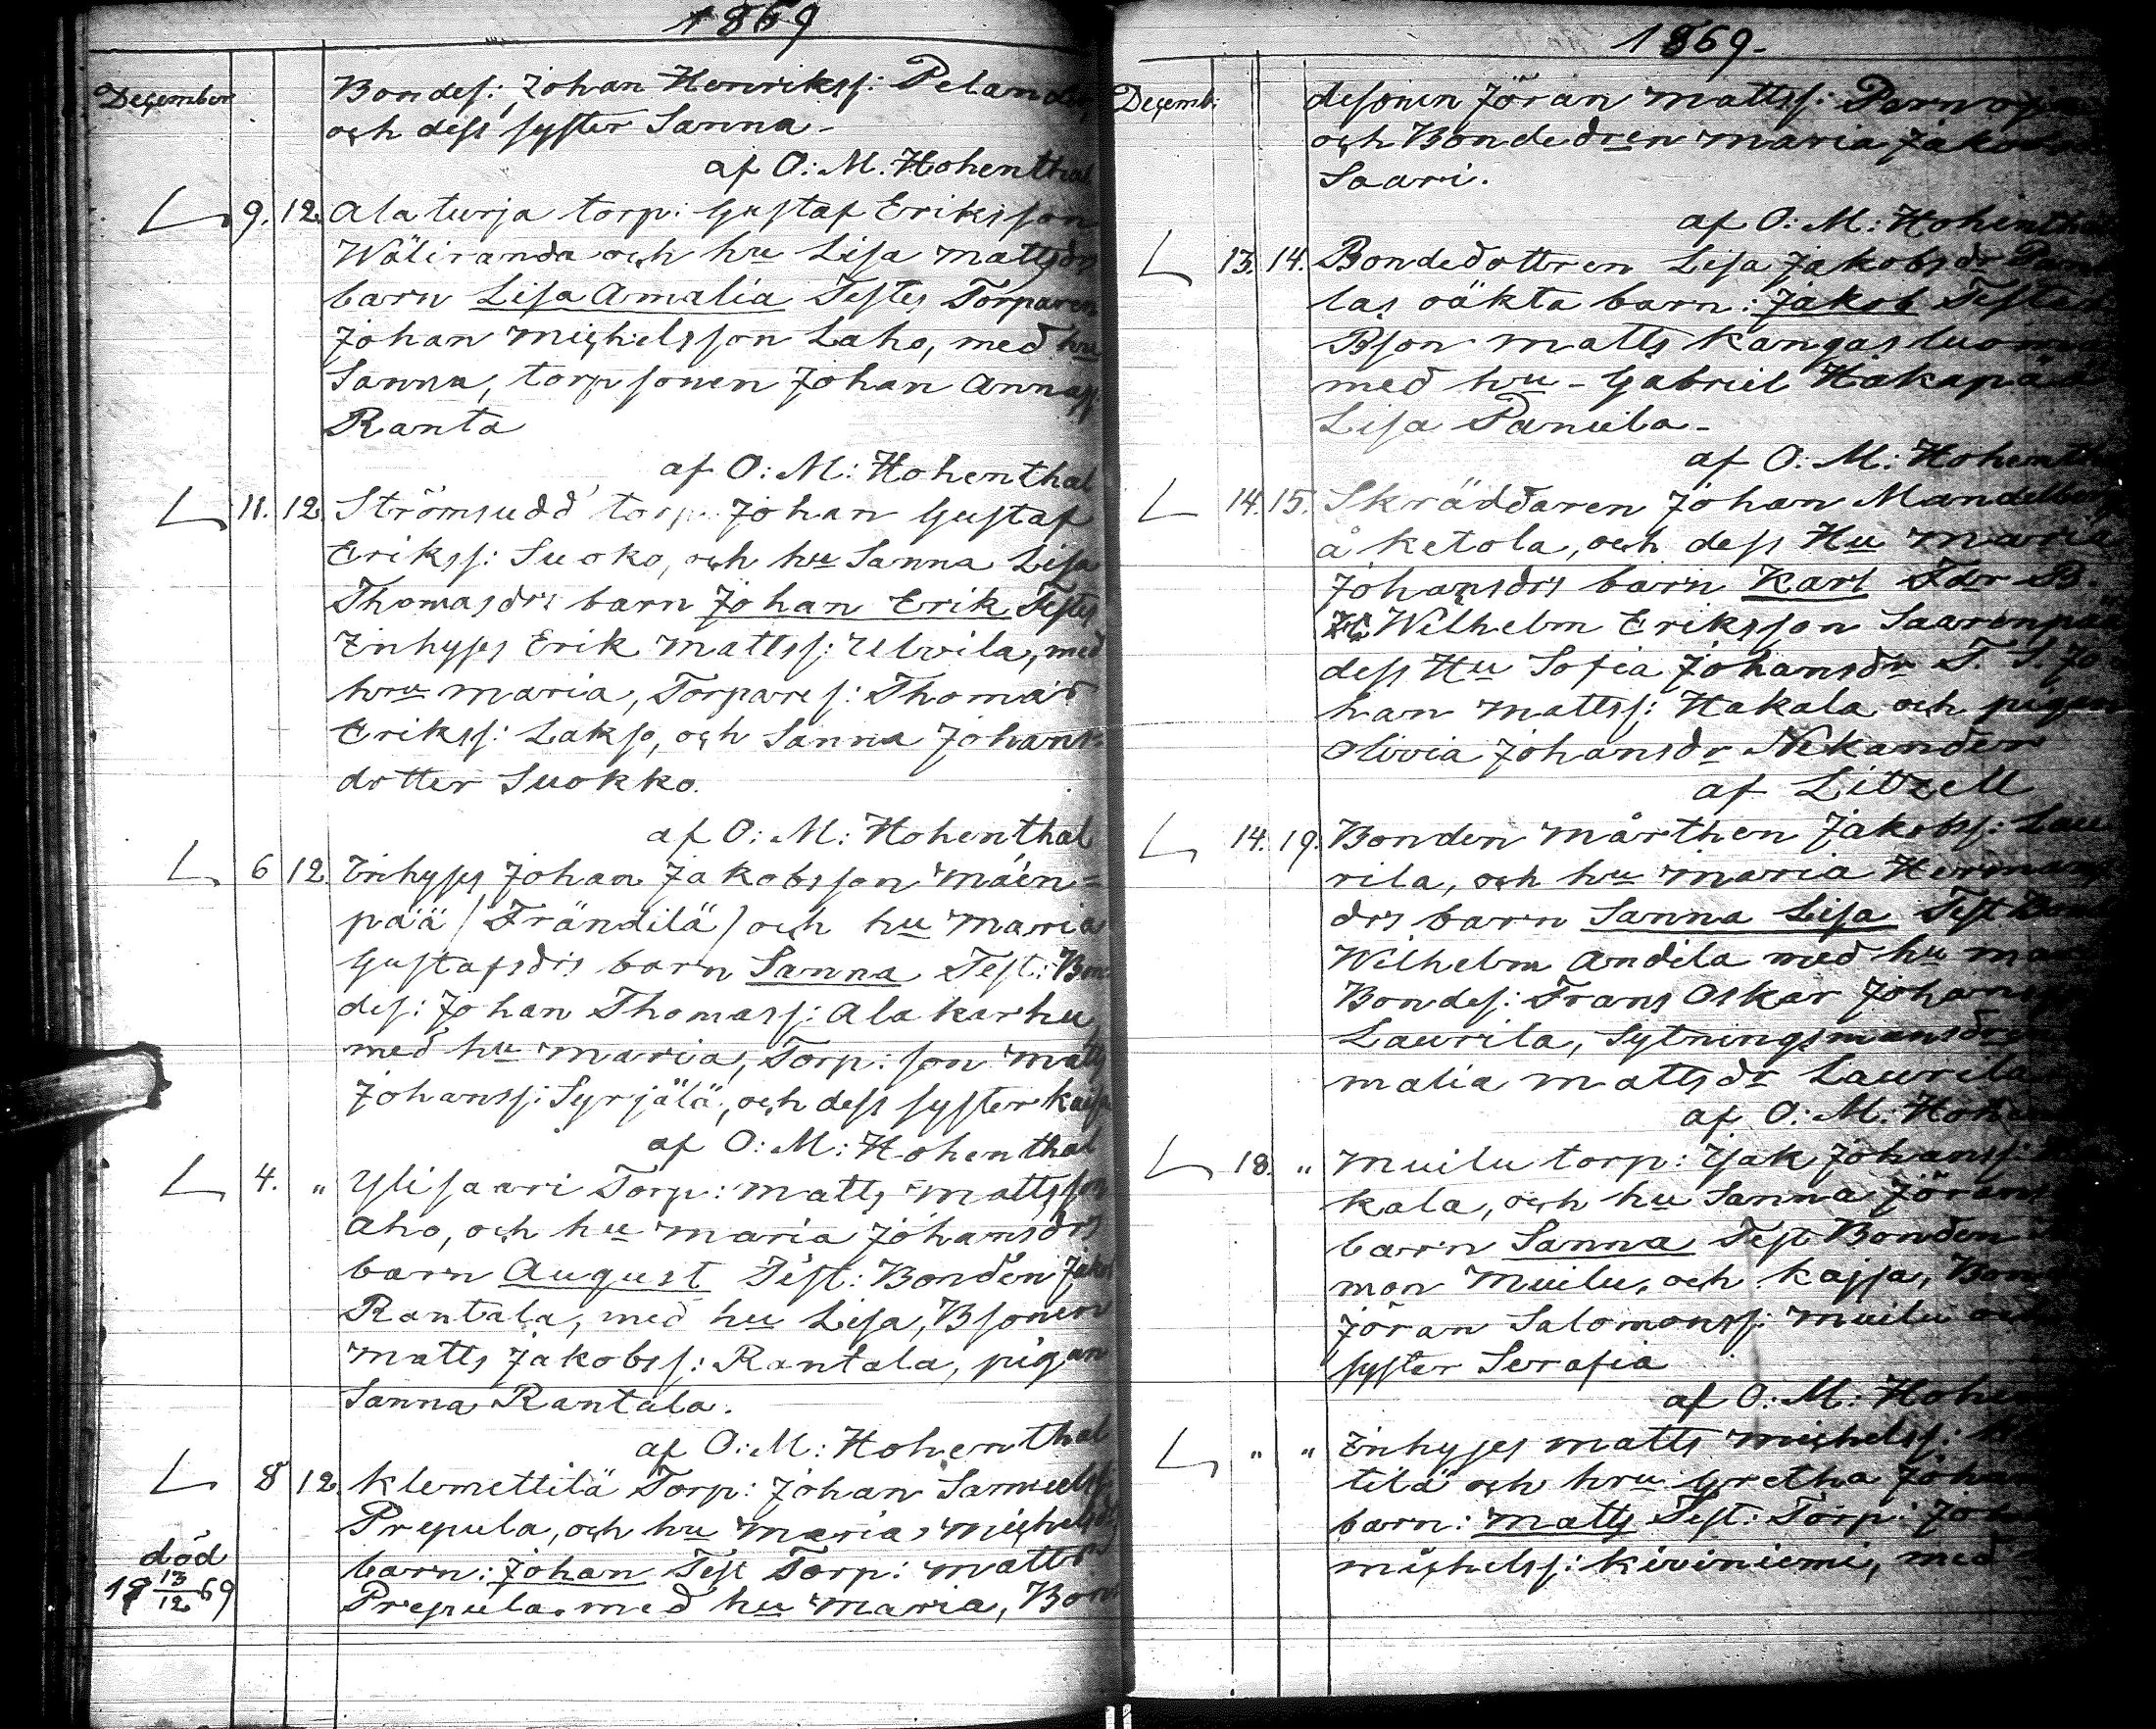 1869
December
Bondes: Johan Henrikss: Pelander
och dess syster Sanna-
af O: M. Hohenthal
9. 12. Alaturja torp: Gustaf Eriksson
Wäliranda och hu Lisa Mattsdrs
barn Lisa Amalia Testes Torparen
Johan Michelsson Laho, med hu
Sanna, torpsonen Johan Annass:
Ranta
af O: M: Hohenthal
11. 12. Strömsudd torp: Johan Gustaf
Erikss: Suoko, och hu Sanna Lisa
Thomasdrs barn Johan Erik Testes
Inhyses Erik Mattss: Ulvila, med
hru Maria, Torpares: Thomas
Erikss: Lakso, och Sanna Johans-
dotter Suokko.
af O: M: Hohenthal
6 12. Inhyses Johan Jakobsson Mäen-
pää (Frändilä) och hu Maria
Gustafsdrs barn Sanna Test: Bon-
des: Johan Thomass: Alakarhu
med hu Maria, Torp: son Matts
Johanss: Syrjälä, och dess syster Kajsa
af O: M: Hohenthal
4. " Ylisaari Torp: Matts Mattsson
Aho, och hu Maria Johansdrs
barn August Test: Bonden Jakob
Rantala, med hu Lisa, Bsonen
Matts Jakobss: Rantala, pigan
Sanna Rantala.
af O: M: Hohenthal
8 12. Klemettilä Torp: Johan Samuelss:
Prepula, och hu Maria Michelsdrs
barn: Johan Test Torp: Matts
Prepula med hu Maria, Bon
död
18 13/12 69
1869.
Decemb:
desonen Jöran Mattss:
och Bondedren Maria
Saari.
af O: M: Hohenthal
13. 14. Bondedottren Lisa Jakobsdr Panu
las oäkta barn: Jakob Testes
Bson Matts Kangasluoma
med hu - Gabriel Hakapää
Lisa Panula-
af O: M: Hohenthal
14. 15. Skräddaren Johan Mandelberg
å Ketola, och dess Hu Maria
Johansdrs barn Karl Fdr B.
Wilhelm Eriksson Saarenpää
dess Hu Sofia Johansdr T. S. Jo
han Mattss: Hakala och pigan
Olivia Johansdr Nekander
af Litzell
14. 19. Bonden Mårthen Jakobss: Lau
rila, och hu Maria Hermans
drs barn Sanna Lisa Test Bond
Wilhelm Andila med hu
Bondes: Frans Oskar Johanss
Laurila, Sytningsmansdr
malia Mattsdr Laurila
af O: M: Hohen
18. " Muilu torp: Isak Johanss:
kala, och hu Sanna Jörans
barn Sanna Test Bonden
mon Muilu, och Kajsa, Bon
Jöran Salomonss: Muilu och
syster Serafia
af O: M: Hohen
" " Inhyses Matts Michelss:
tilä och hru Gretha Johan
barn: Matts Test: Torp: Joh
Michelss: Kiviniemi, med